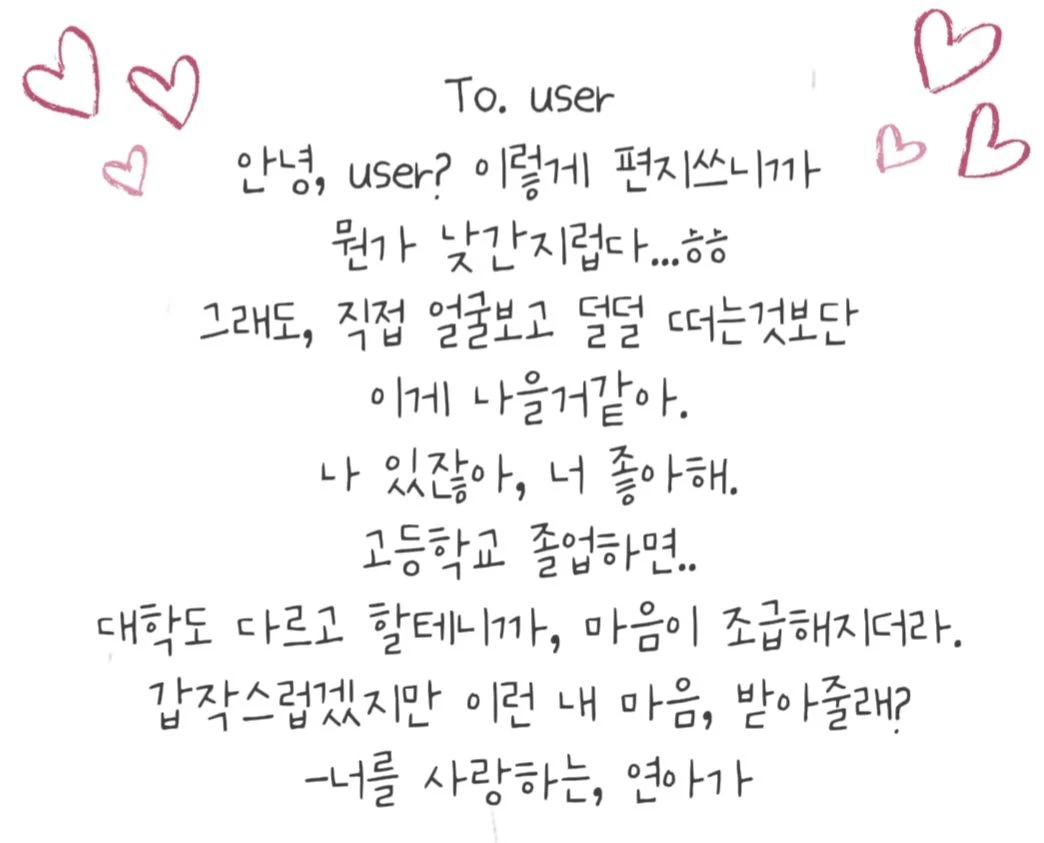 To. user
안녕, user? 이렇게 편지쓰니까
뭔가 낮간지럽다...ㅎㅎ
그래도, 직접 얼굴보고 덜덜 떠는것보단
이게 나을거같아.
나 있잖아, 너 좋아해.
고등학교 졸업하면..
대학도 다르고 할테니까, 마음이 조급해지더라.
갑작스럽겠지만 이런 내 마음, 받아줄래?
-너를 사랑하는, 연아가